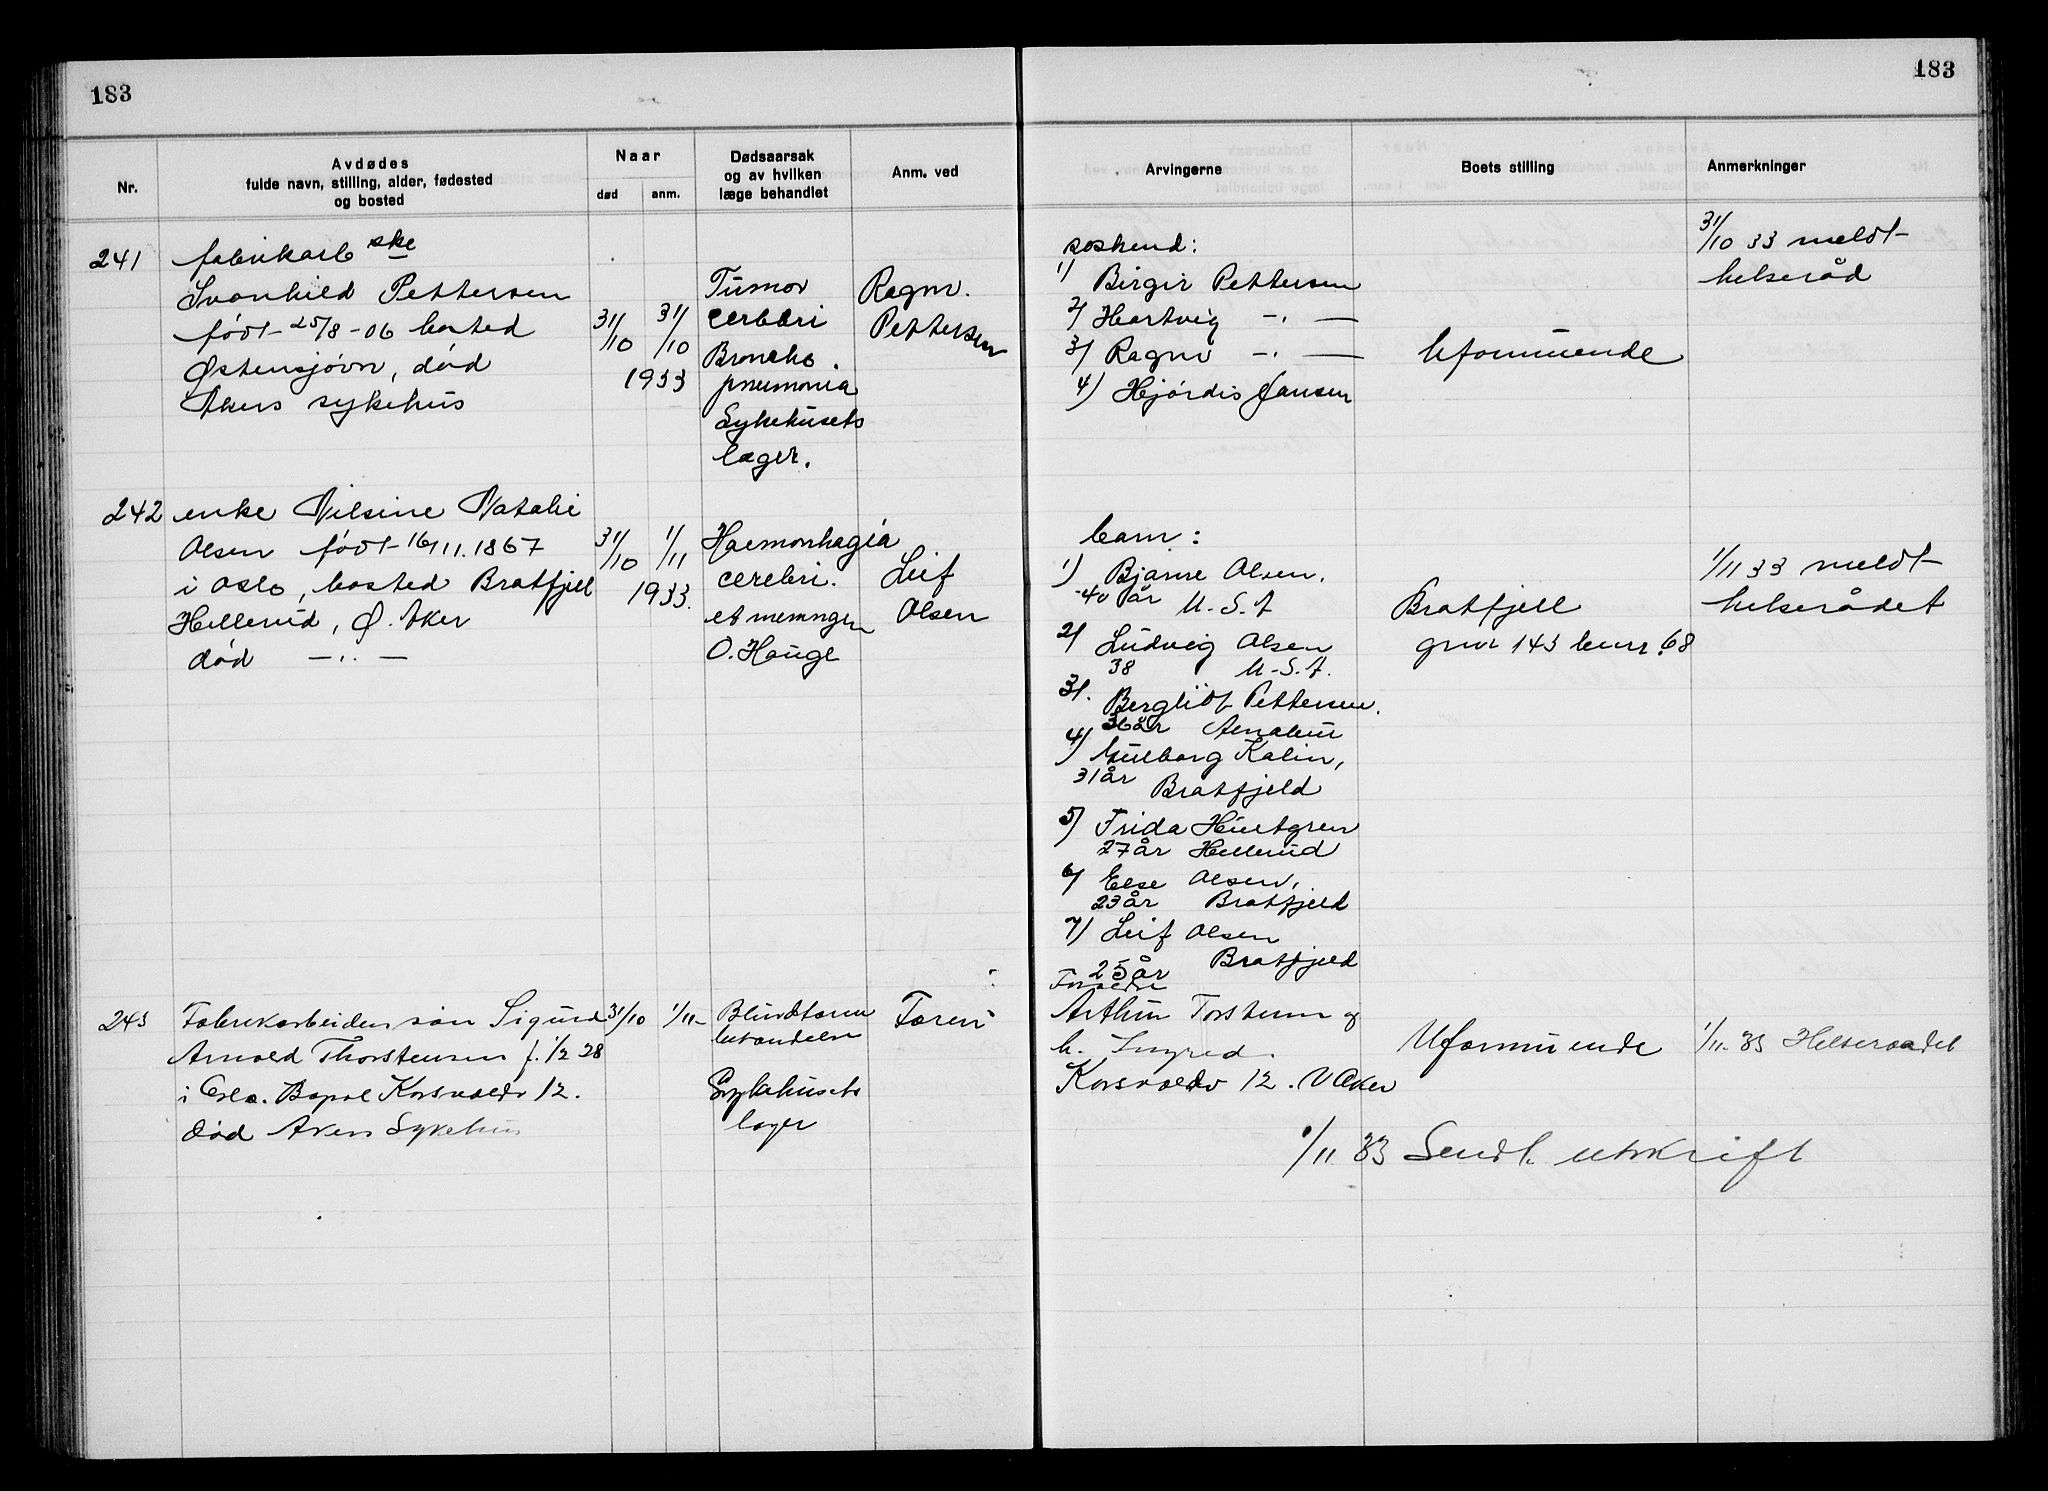 183
183
Nr.
Avdødes
fulde navn, stilling, alder, fødested
og bosted
Naar
død
anm.
Dødsaarsak
og av hvilken
læge behandlet
Anm. ved
Arvingerne
Boets stilling
Anmerkninger
241
fabrikarb ske
Svanhild Pettersen
født 25/8-06 bosted
Østensjøvn, død
Akers sykehus
31/10 31/10
1933
Tumor
cerebri
Broncho
pneumonia
Sykehusets
læger.
Ragnv.
Pettersen
søskend:
1) Birgir Pettersen
2) Hartvig -"-
3) Ragnv -"-
4) Hjørdis Jansen
Uformuende
31/10 33 meldt
helseråd
242 enke Nilsine Natalie
Olsen født 16/11.1867
i Oslo, bosted Bratfjell
Hellerud, Ø. Aker
død -"-
31/10 1/11
1933.
Haemorrhagia
cerebri.
et meningen
O. Hauge
Leif
Olsen
barn:
1) Bjarne Olsen.
40 år U.S.A
2) Ludvig Olsen
38 U.S.A.
3). Bergliot Pettersen.
36 år
4) Gulborg Kalin,
31 år
Bratfjeld
5) Frida Hultgren
27 år Hellerud
6) Else Olsen,
23 år Bratfjeld
7) Leif Olsen
25 år Bratfjeld
Bratfjell
gnr 143 bnr. 68
1/11 33 meldt
helserådet
243 Fabrikarbeider søn Sigurd
Arnold Thorstensen f. 1/2 28
i Oslo. Bopæl Korsvoldv 12.
død Akers Sykehus
31/10 1/11
Blindtarm
betændelse
Sykehusets
læger
Faren
Foreldre
Arthur Torstensen og
h. Ingrid
Korsvoldv 12. V Aker
Uformuende
1/11.33 Helseraadet
1/11 33 Sendt utskrift